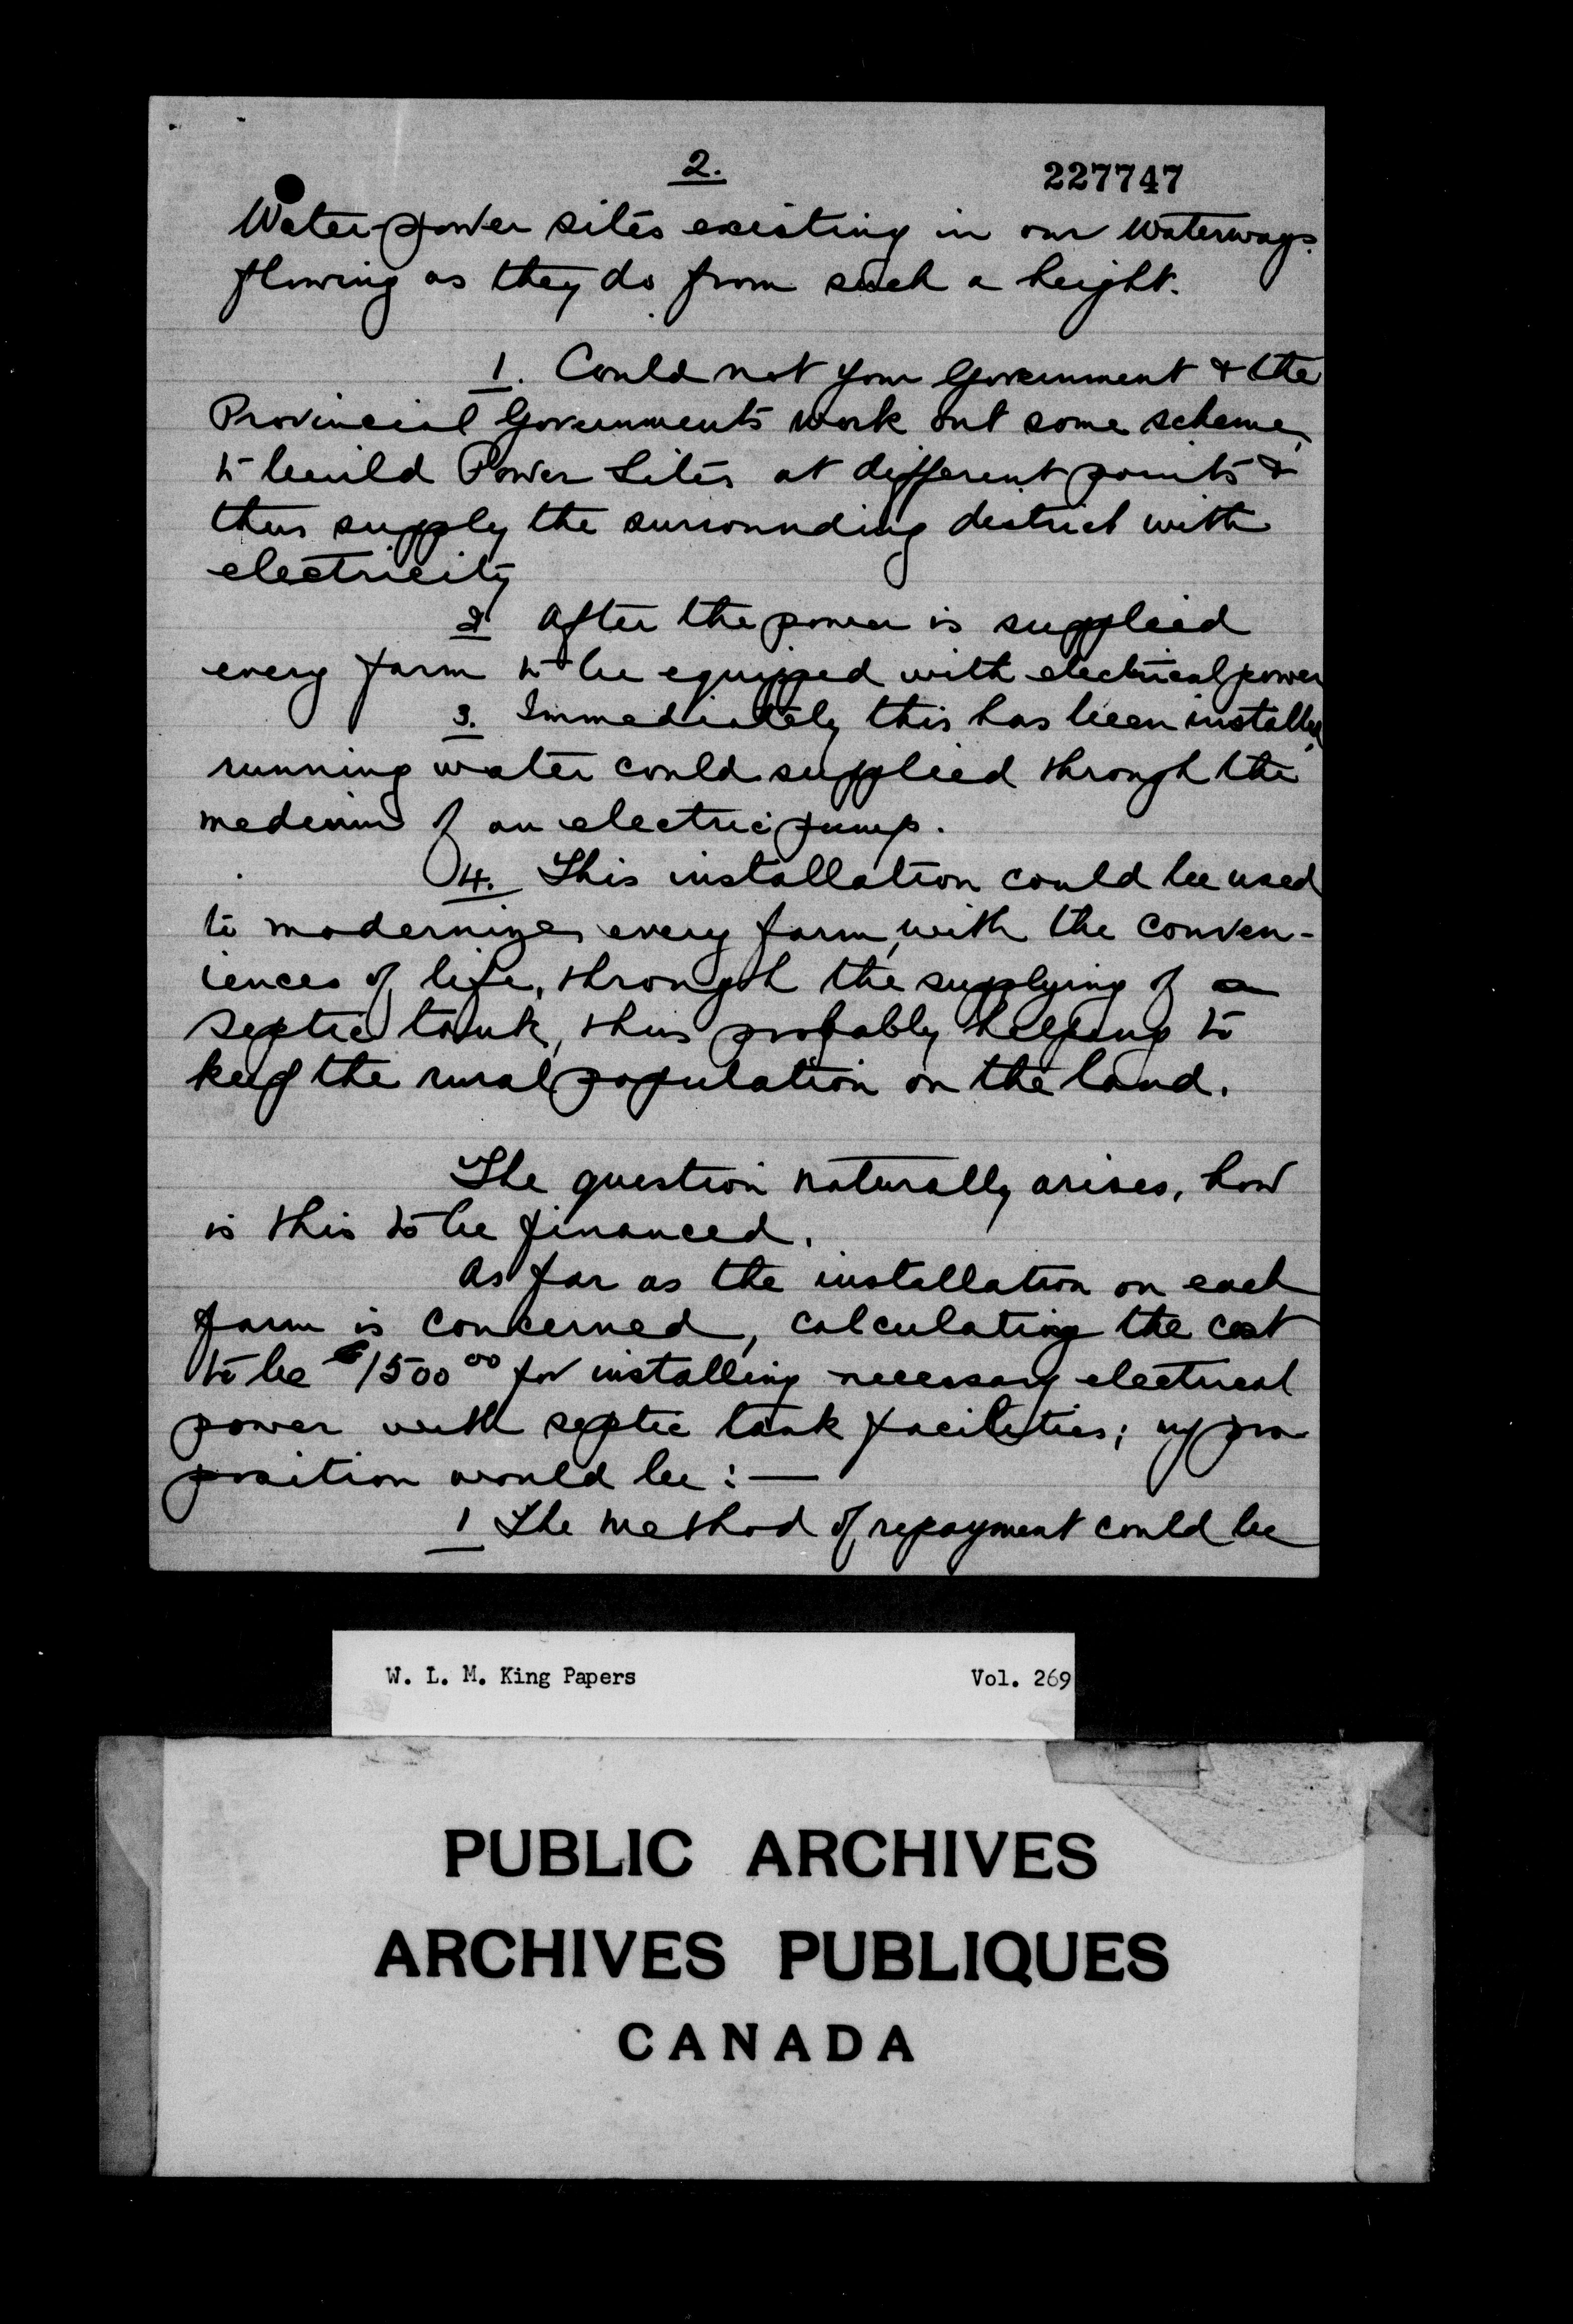 2.
227747
Water-power sites existing in our Waterways.
flowing as they do from such a height.
1. Could not your Government & the
Provincial Governments work out some scheme,
to build Power Sites at different points &
thus supply the surrounding district with
electricity
2 After the power is supplied
every farm to be equipped with electrical power
3. Immediately this has been installed,
running water could supplied through the
medium of an electric pump.
4. This installation could be used
to modernize every farm, with the conven-
iences of life, through the supplying of a
septic tank, thus probably helping to
keep the rural population on the land.
The question naturally arises, how
is this to be financed.
As far as the installation on each
farm is concerned, calculating the cost
to be $1500 00 for installing necessary electrical
power with septic tank facilities; my pro
position would be: —
1 The method of repayment could be
W. L. M. King Papers Vol. 269
PUBLIC ARCHIVES
ARCHIVES PUBLIQUES
CANADA